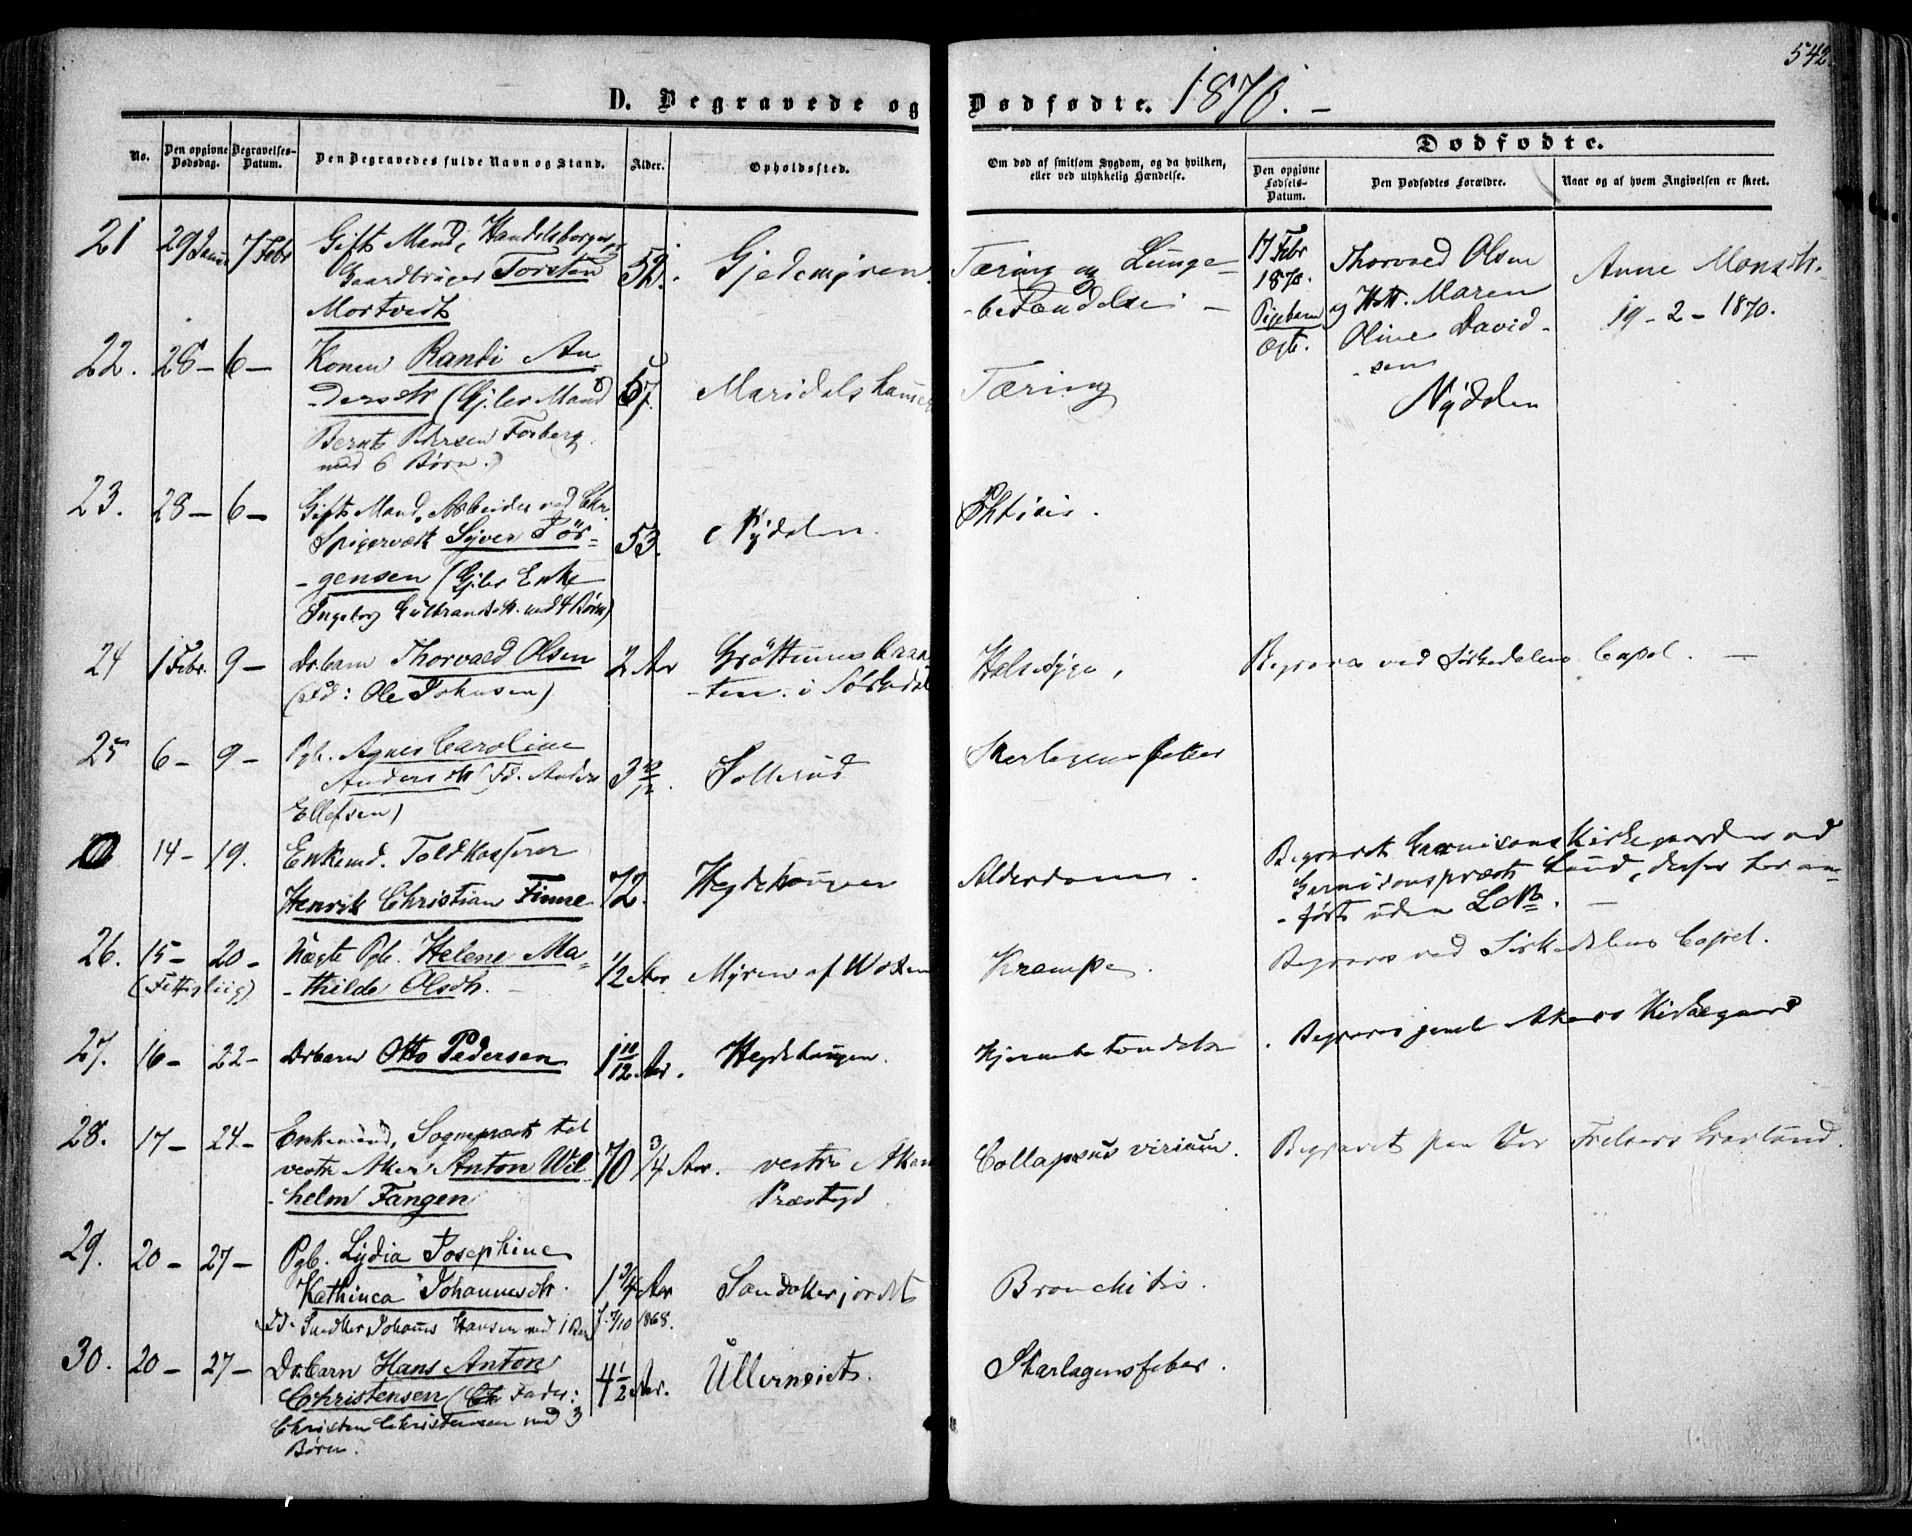 542.
D. Begravede og Dødfødte. 1870. –
No.
Den opgivne Dødsdag.
Begravelses-Datum.
Den Begravedes fulde Navn og Stand.
Alder.
Opholdssted.
Om død af smitsom Sygdom, og da hvilken,
eller ved ulykkelig Hændelse.
Dødfødte.
Den opgivne Fødsels-Datum.
Den Dødfødtes Forældre.
Naar og af hvem Angivelsen er skeet.
21 29 Janu 7 Febr Gift Mand, Handelsborger og
Gaardbruger Torsten
Mortvedt
52. Gjedemyren
Tæring og Lunge-
-betændelse. –
17 Febr
1870.
Pigebarn
Ægte.
Thorvald Olsen
og Hstr. Maren
Oline David-
sen
Nydalen
Anne Monsdtr.
19 - 2 - 1870.
22. 28 – 6 – Konen Randi An-
-dersdtr (Gjlev Mand
Bernt Petersen Forberg
med 6 Børn.)
57. Maridalshammer
Tæring
23. 28 – 6 – Gift Mand, Arbeider ved Chr.
Spigerværk Syver Jør-
-gensen (Gjlev Enke
Ingeborg Gulbrandsdtr. med 4 Børn)
53. Nydalen.
Phtisis.
24 1 Febr. 9 – Drbarn Thorvald Olsen
(Fd: Ole Johnsen)
2 Aar Grøttumsbraa-
-ten i Sørkedal
Halssyge,
Begraves ved Sørkedalens Capel. –
25 6 – 9 – Pgb. Agnes Caroline
Andersdtr (Fd. Anders
Ellefsen)
3 10/12. Sollerud
Skarlagensfeber
14 – 19. Enkemd. Toldkasserer
Henrik Christian Finne
72. Hegdehaugen
Alderdom.
Begravet Garnisons Kirkegaarden ved
Garnisonspræst Lund, derfor her an-
-ført uden L No. –
26. 15 – 20 – Uægte Pgb. Helene Ma-
-thilde Olsdtr. –
(Fattiglig)
1/2 Aar Myren af Woxen
Krampe.
Begraves ved Sørkedalens Capel.
27. 16 – 22 – Drbarn Otto Pedersen
1 11/12 Aar. Hegdehaugen.
Hjernebetændelse.
Begraves gamle Akers Kirkegaard
28. 17 – 24 – Enkemand, Sognepræst til
vestre Aker Anton Wil-
-helm Fangen
70 3/4 Aar. vestre Akers
Præstegd.
Collapsus virium.
Begravet paa Vor Frelsers Gravlund.
29. 20 – 27 – Pgb. Lydia Josephine
Kathinca Johannesdtr.
Fd. Snedker Johannes Hansen med 1 Barn
1 3/4 Aar
f. 7/10 1868.
Sandakerjordet
Bronchitis.
30. 20 – 27 – Drbarn Hans Anton
Christensen (Fader:
Christen Christensen med 3
Børn.
4 1/2 Aar. Ullernveiet.
Skarlagensfeber.